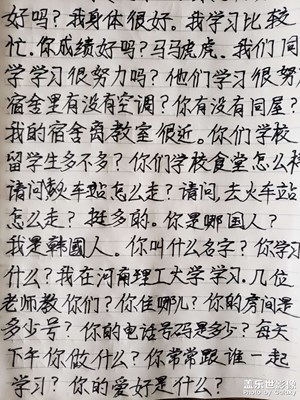 好吗？我身体很好。我学习比较
忙.你成绩好吗？马马虎虎.我们同
学学习很努力吗？他们学习很努
宿舍里有没有空调？你有没有同屋？
我的宿舍离教室很近。你们学校
留学生多不多？你们学校食堂怎么样
请问,火车站怎么走？请问,去火车站
怎么走？挺多的。你是哪国人？
我是韩國人。你叫什么名字？你学习
什么？我在河南理工大学学习.几位
老师教你们？你住哪儿？你的房间是
多少号？你的电话号码是多少？每天
下午你做什么？你常常跟谁一起
学习？你的爱好是什么？